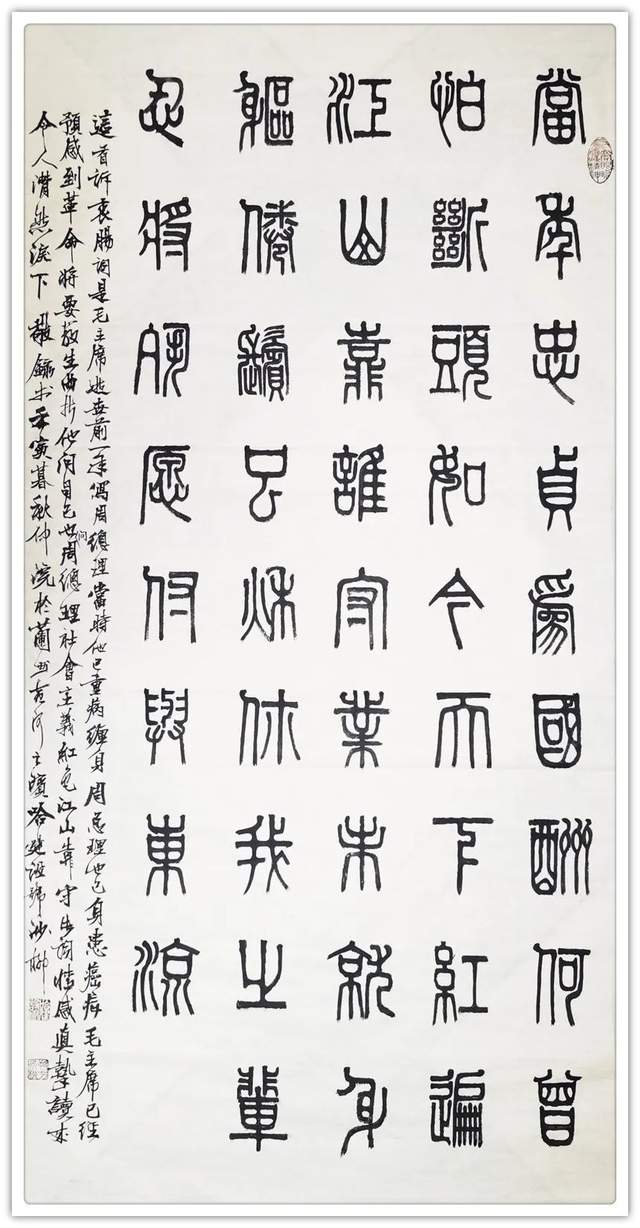 當年忠貞為國酬何曾
怕斷頭如今天下紅遍
江山靠誰守業未就身
軀倦鬢已秋你我之輩
忍將夙愿付與東流
這首訴衷腸詞是毛主席逝世前一年寫周總理當時他已重病纏身周总理也已身患癌病毛主席已經
預感到革命將要發生曲折他问自己也问周總理社會主義紅色江山靠守情感真摯讀來
令人潸然淚下敬錄於壬寅暮秋仲浣於蘭州黃河之濱